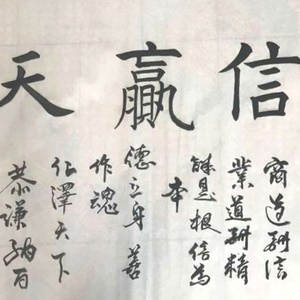 信贏天
商道酬信
業道酬精
誠是根信為
本
德立身善
作魂
仁澤天下
恭謙納百